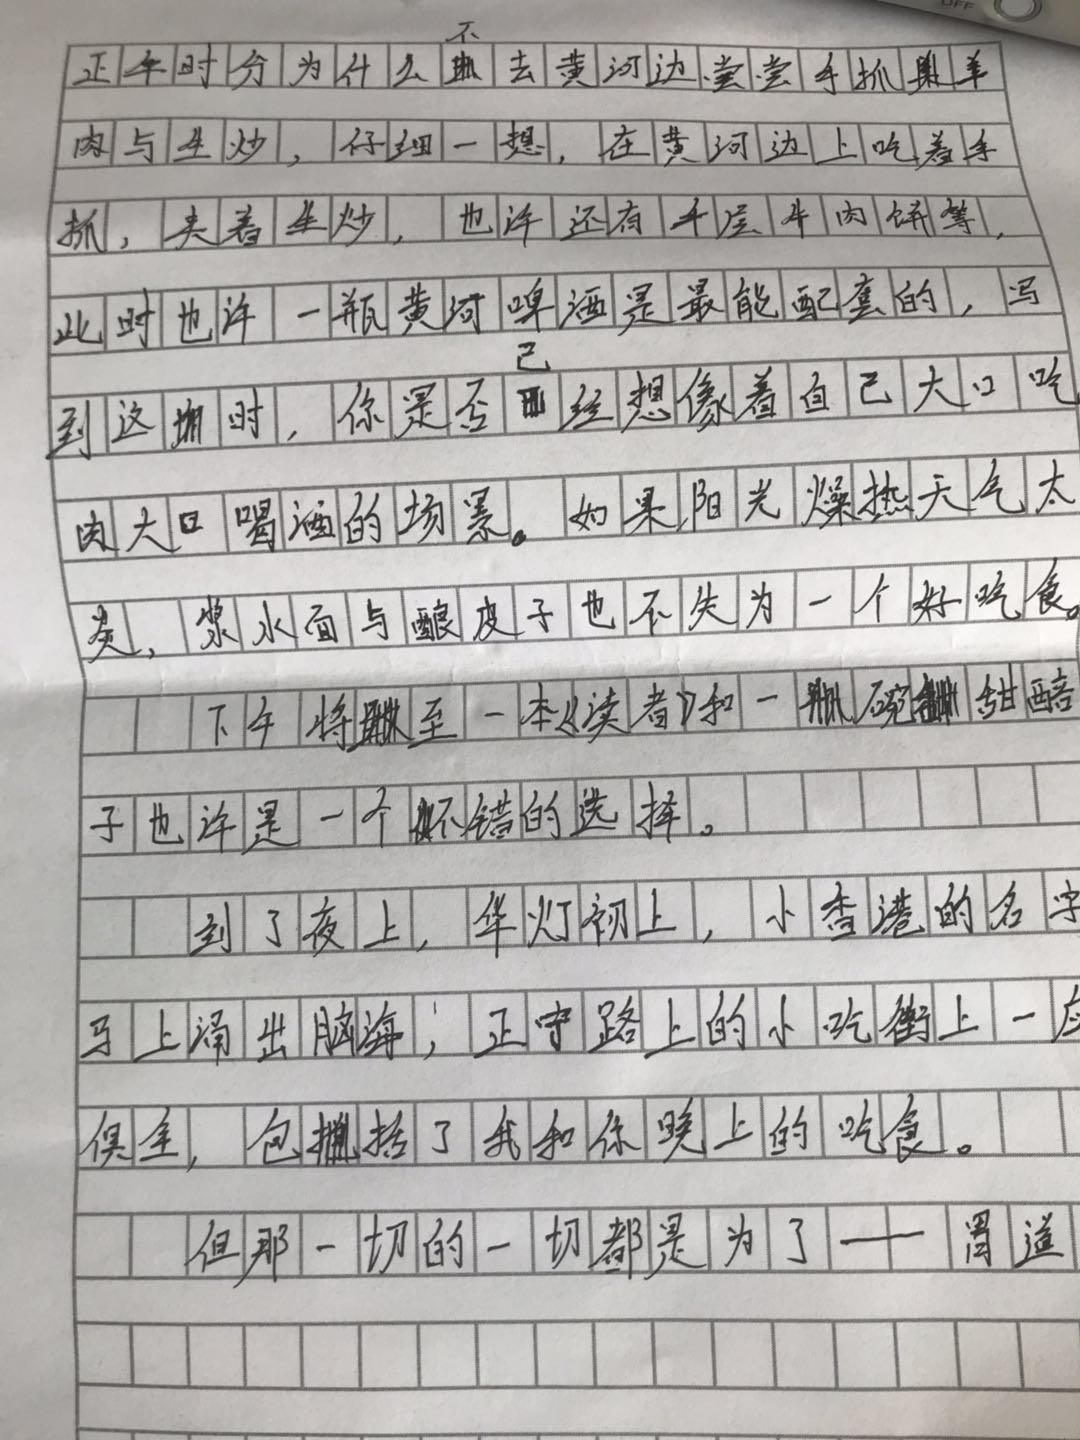 正午时分为什么不去黄河边尝尝手抓羊
肉与生炒，仔细一想，在黄河边上吃着手
抓，夹着生炒，也许还有千层牛肉饼等，
此时也许一瓶黄河啤酒是最能配套的，写
到这时，你是否已经想像着自己大口吃
肉大口喝酒的场景。如果阳光燥热天气太
炎，浆水面与酿皮子也不失为一个好吃食。
下午将至一本《读者》和一碗甜醅
子也许是一个不错的选择。
到了夜上，华灯初上，小香港的名字
马上涌出脑海；正宁路上的小吃街上一应
俱全，包括了我和你晚上的吃食。
但那一切的一切都是为了——胃道
OFF